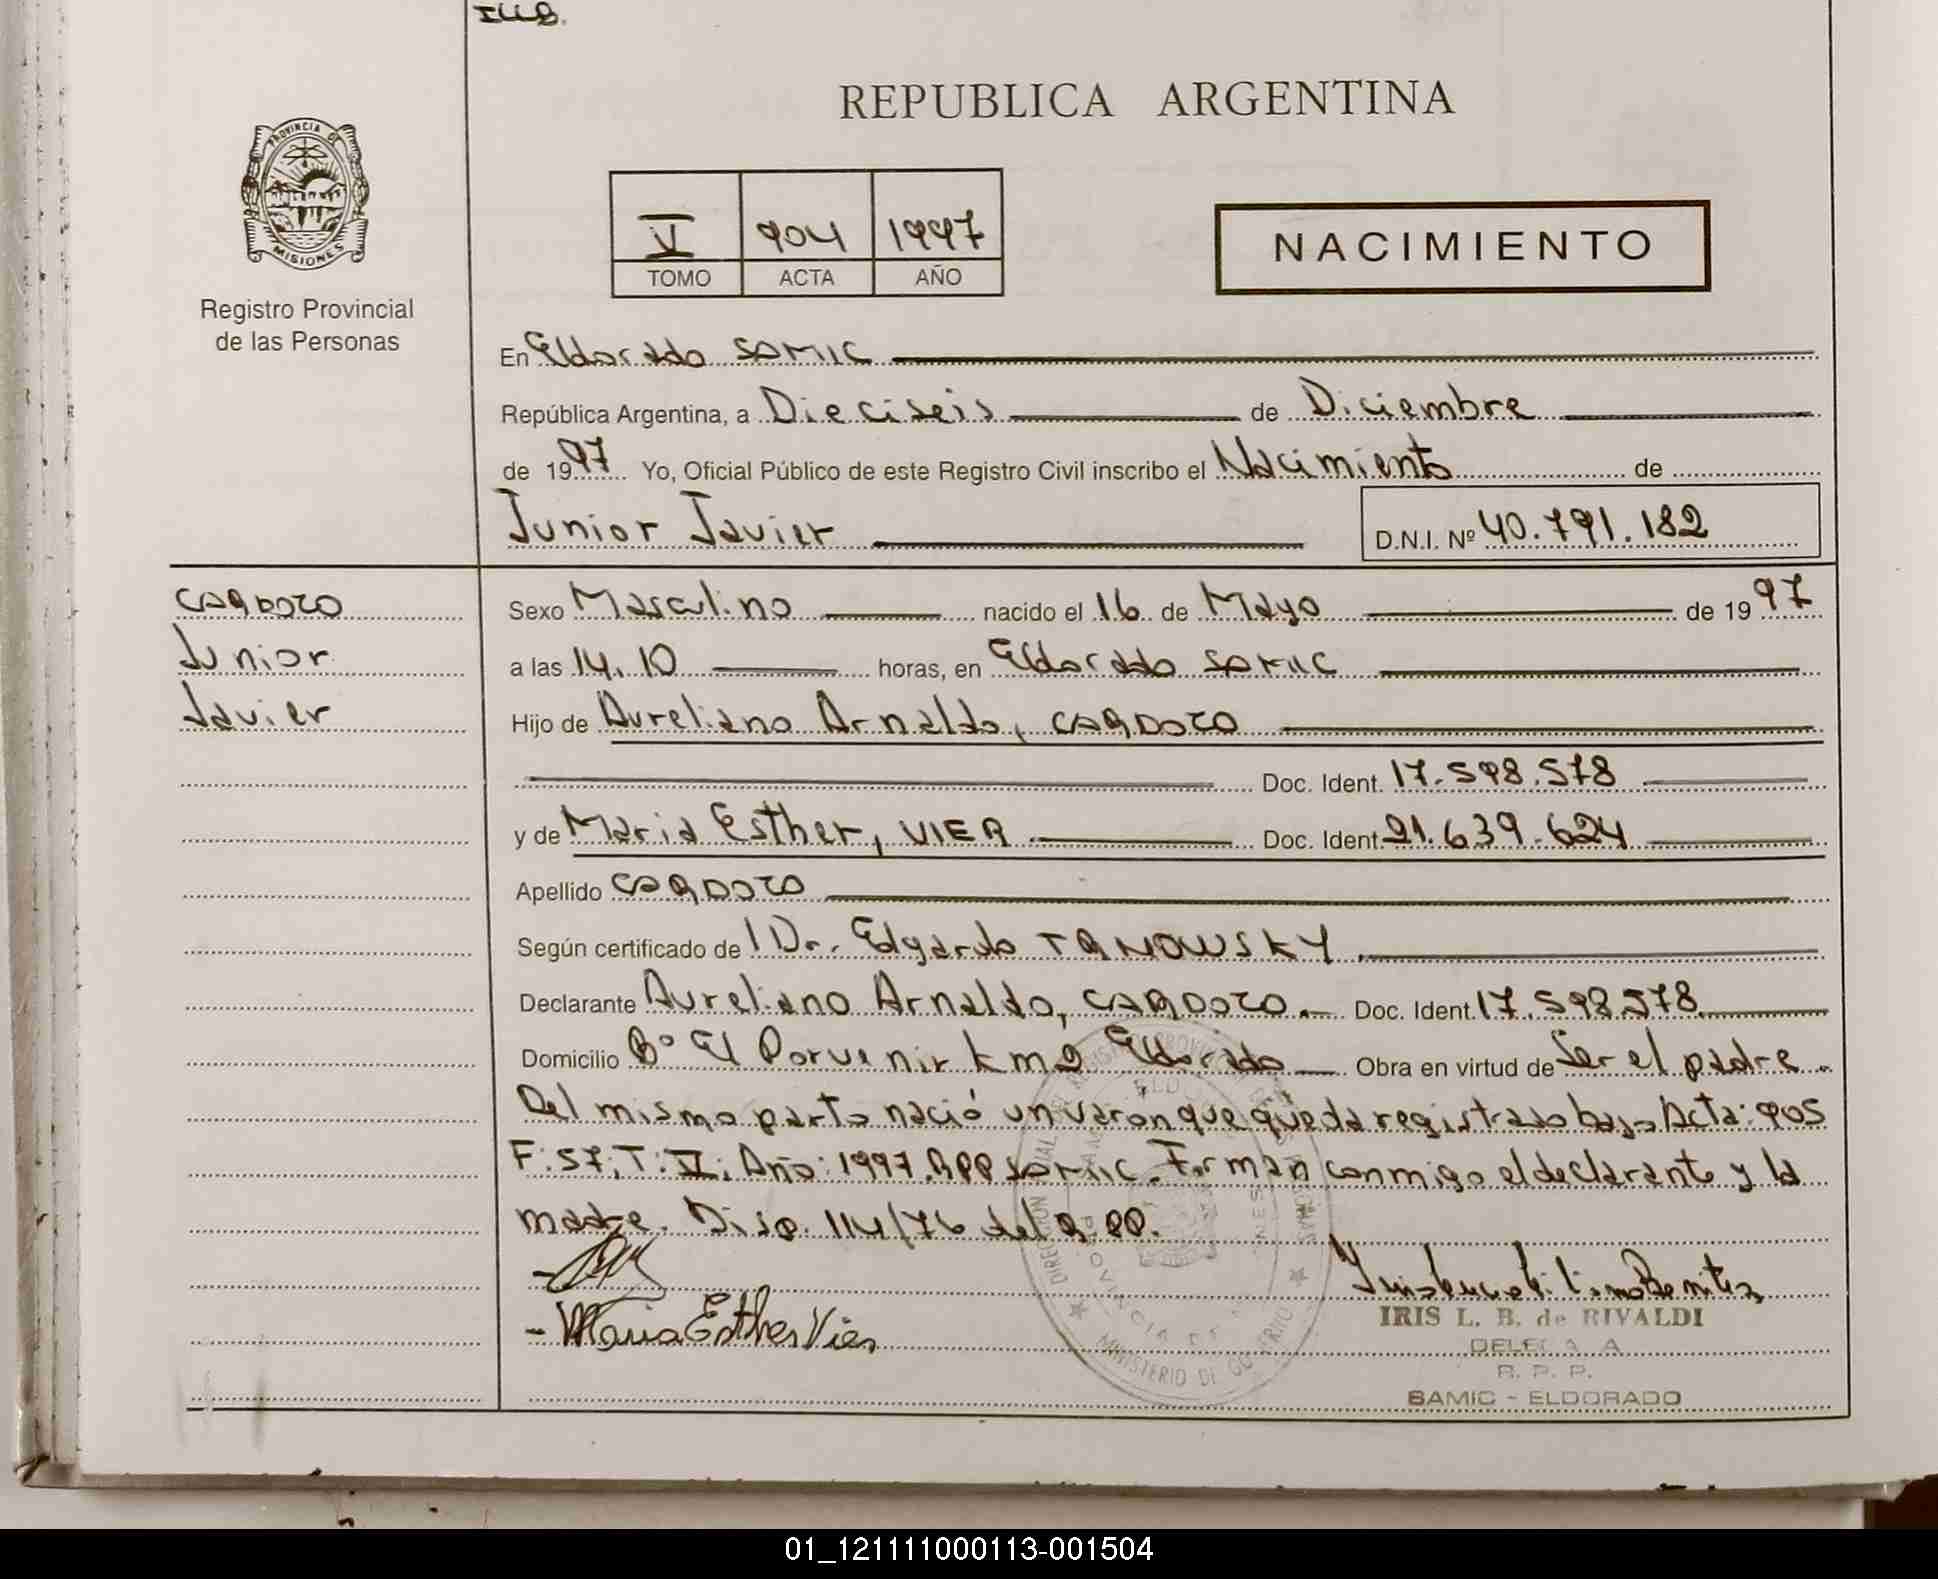 ILLB.
REPUBLICA ARGENTINA
PROVINCIA DE
MISIONES
Registro Provincial
de las Personas
V 904 1997
TOMO ACTA AÑO
NACIMIENTO
En Eldorado SAMIC
República Argentina, a Dieciseis de Diciembre
de 1997 Yo, Oficial Público de este Registro Civil inscribo el Nacimiento de
Junior Javier D.N.I. Nº 40.791.182
CARDOZO
Junior
Javier
Sexo Masculino nacido el 16 de Mayo de 1997
a las 14.10 horas, en Eldorado SAMIC
Hijo de Aureliano Arnaldo, CARDOZO
Doc. Ident. 17.598.578
y de Maria Esther, VIER Doc. Ident. 21.639.624
Apellido CARDOZO
Según certificado de l Dr. Edgardo
Declarante Aureliano Arnaldo, CARDOZO. Doc. Ident. 17.598.578
Domicilio Bº El Porvenir km 2 Eldorado Obra en virtud de Ser el padre.
Del mismo parto nació un varon que queda registrado bajo Acta: 905
F: 57; T: V; Año: 1997. RPP SAMIC. Firman conmigo el declarante y la
madre. Disp. 114/76 del R.PP.
- Maria Esther Vier
IRIS L. B. de RIVALDI
DELEGADA
R. P. P.
SAMIC - ELDORADO
MINISTERIO DE GOBIERNO
01_121111000113-001504